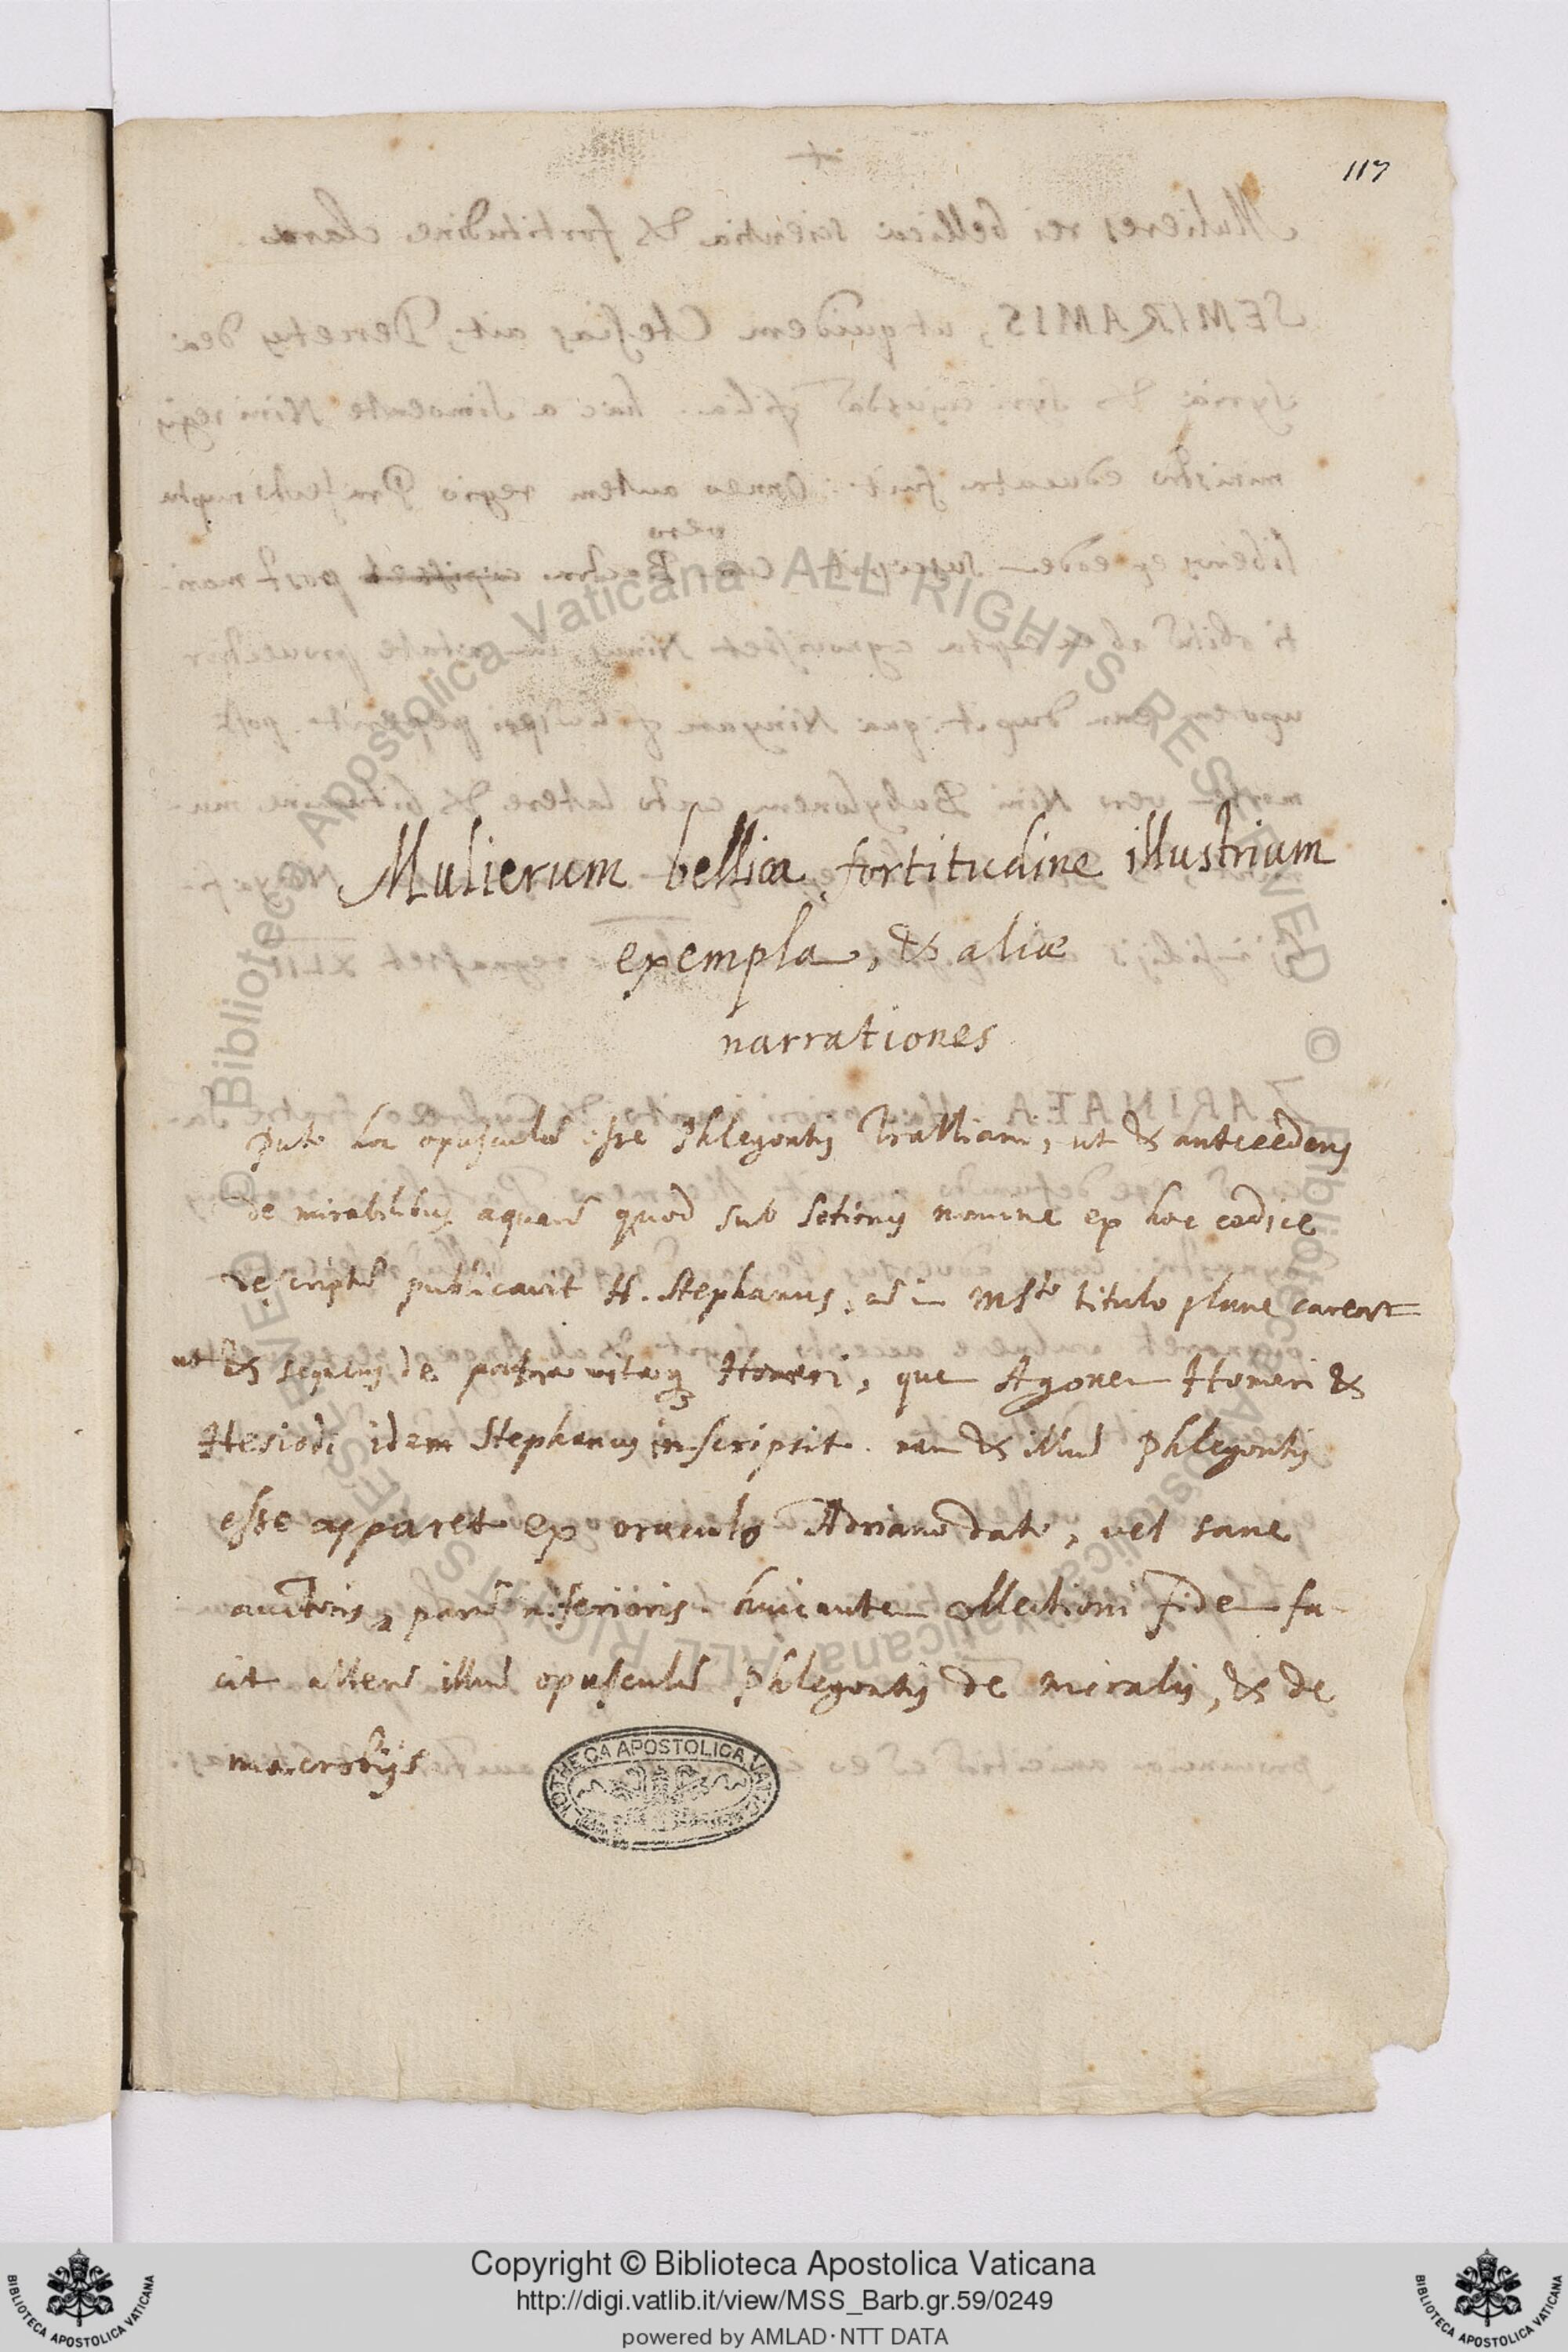 117
Mulierum bellica fortitudine illustrium
exempla, & aliæ
narrationes
Puto hoc opusculũ esse Phlegontis Tralliani, ut & antecedens
de mirabilibus aquarũ quod sub Sotionis nomine ex hoc codice
descriptũ publicavit H. Stephanus, cũ in Msto titulo plane careat
ut & sequens de patria vitaq3 Homeri, que Agonem Homeri &
Hesiodi idem Stephanus inscripsit. nam & illud Phlegontis
esse apparet ex oraculo Adriano dato, vel sane
auctoris, parũ inferioris. huic autem collectioni fidem fa-
cit alterũ illud opusculũ Phlegontis de mirabilis, & de
macrobijs
BIBLIOTHECA APOSTOLICA VATICANA
© Biblioteca Apostolica Vaticana ALL RIGHTS RESERVED
© Biblioteca Apostolica Vaticana ALL RIGHTS RESERVED
Copyright © Biblioteca Apostolica Vaticana
http://digi.vatlib.it/view/MSS_Barb.gr.59/0249
powered by AMLAD·NTT DATA
BIBLIOTECA APOSTOLICA VATICANA
BIBLIOTECA APOSTOLICA VATICANA